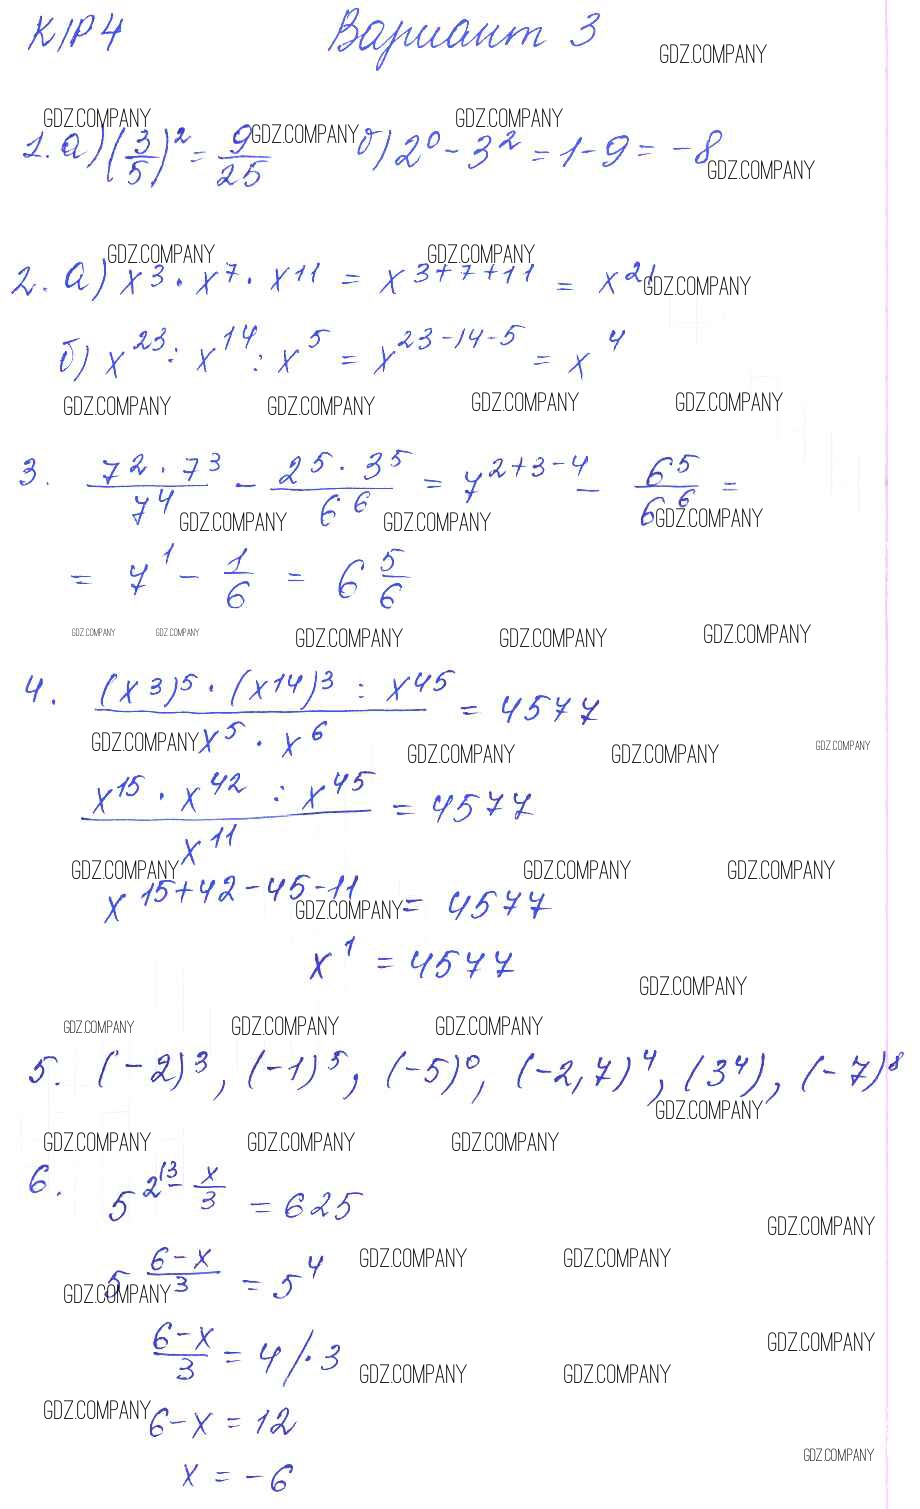 К/Р 4 Вариант 3
GDZ.COMPANY
GDZ.COMPANY GDZ.COMPANY GDZ.COMPANY
1. а) (3/5)² = 9/25 б) 2⁰ - 3² = 1 - 9 = -8
GDZ.COMPANY
GDZ.COMPANY GDZ.COMPANY
2. а) x³ · x⁷ · x¹¹ = x³⁺⁷⁺¹¹ = x²¹
GDZ.COMPANY
б) x²³ : x¹⁴ : x⁵ = x²³⁻¹⁴⁻⁵ = x⁴
GDZ.COMPANY GDZ.COMPANY GDZ.COMPANY GDZ.COMPANY
3. (7² · 7³)/7⁴ - (2⁵ · 3⁵)/6⁶ = 7²⁺³⁻⁴ - 6⁵/6⁶ =
GDZ.COMPANY GDZ.COMPANY GDZ.COMPANY
= 7¹ - 1/6 = 6 5/6
GDZ.COMPANY GDZ.COMPANY GDZ.COMPANY GDZ.COMPANY GDZ.COMPANY
4. ((x³)⁵ · (x¹⁴)³ : x⁴⁵)/(x⁵ · x⁶) = 4577
GDZ.COMPANY GDZ.COMPANY GDZ.COMPANY GDZ.COMPANY
(x¹⁵ · x⁴² : x⁴⁵)/x¹¹ = 4577
GDZ.COMPANY GDZ.COMPANY GDZ.COMPANY
x¹⁵⁺⁴²⁻⁴⁵⁻¹¹ = 4577
GDZ.COMPANY
x¹ = 4577
GDZ.COMPANY
GDZ.COMPANY GDZ.COMPANY GDZ.COMPANY
5. (-2)³, (-1)⁵, (-5)⁰, (-2,7)⁴, (3⁴), (-7)⁸
GDZ.COMPANY
GDZ.COMPANY GDZ.COMPANY GDZ.COMPANY
6. 5^(2^(13) - x/3) = 625
GDZ.COMPANY
5^((6-x)/3) = 5⁴
GDZ.COMPANY GDZ.COMPANY GDZ.COMPANY
(6-x)/3 = 4 /·3
GDZ.COMPANY
GDZ.COMPANY GDZ.COMPANY
6-x = 12
GDZ.COMPANY
GDZ.COMPANY
x = -6